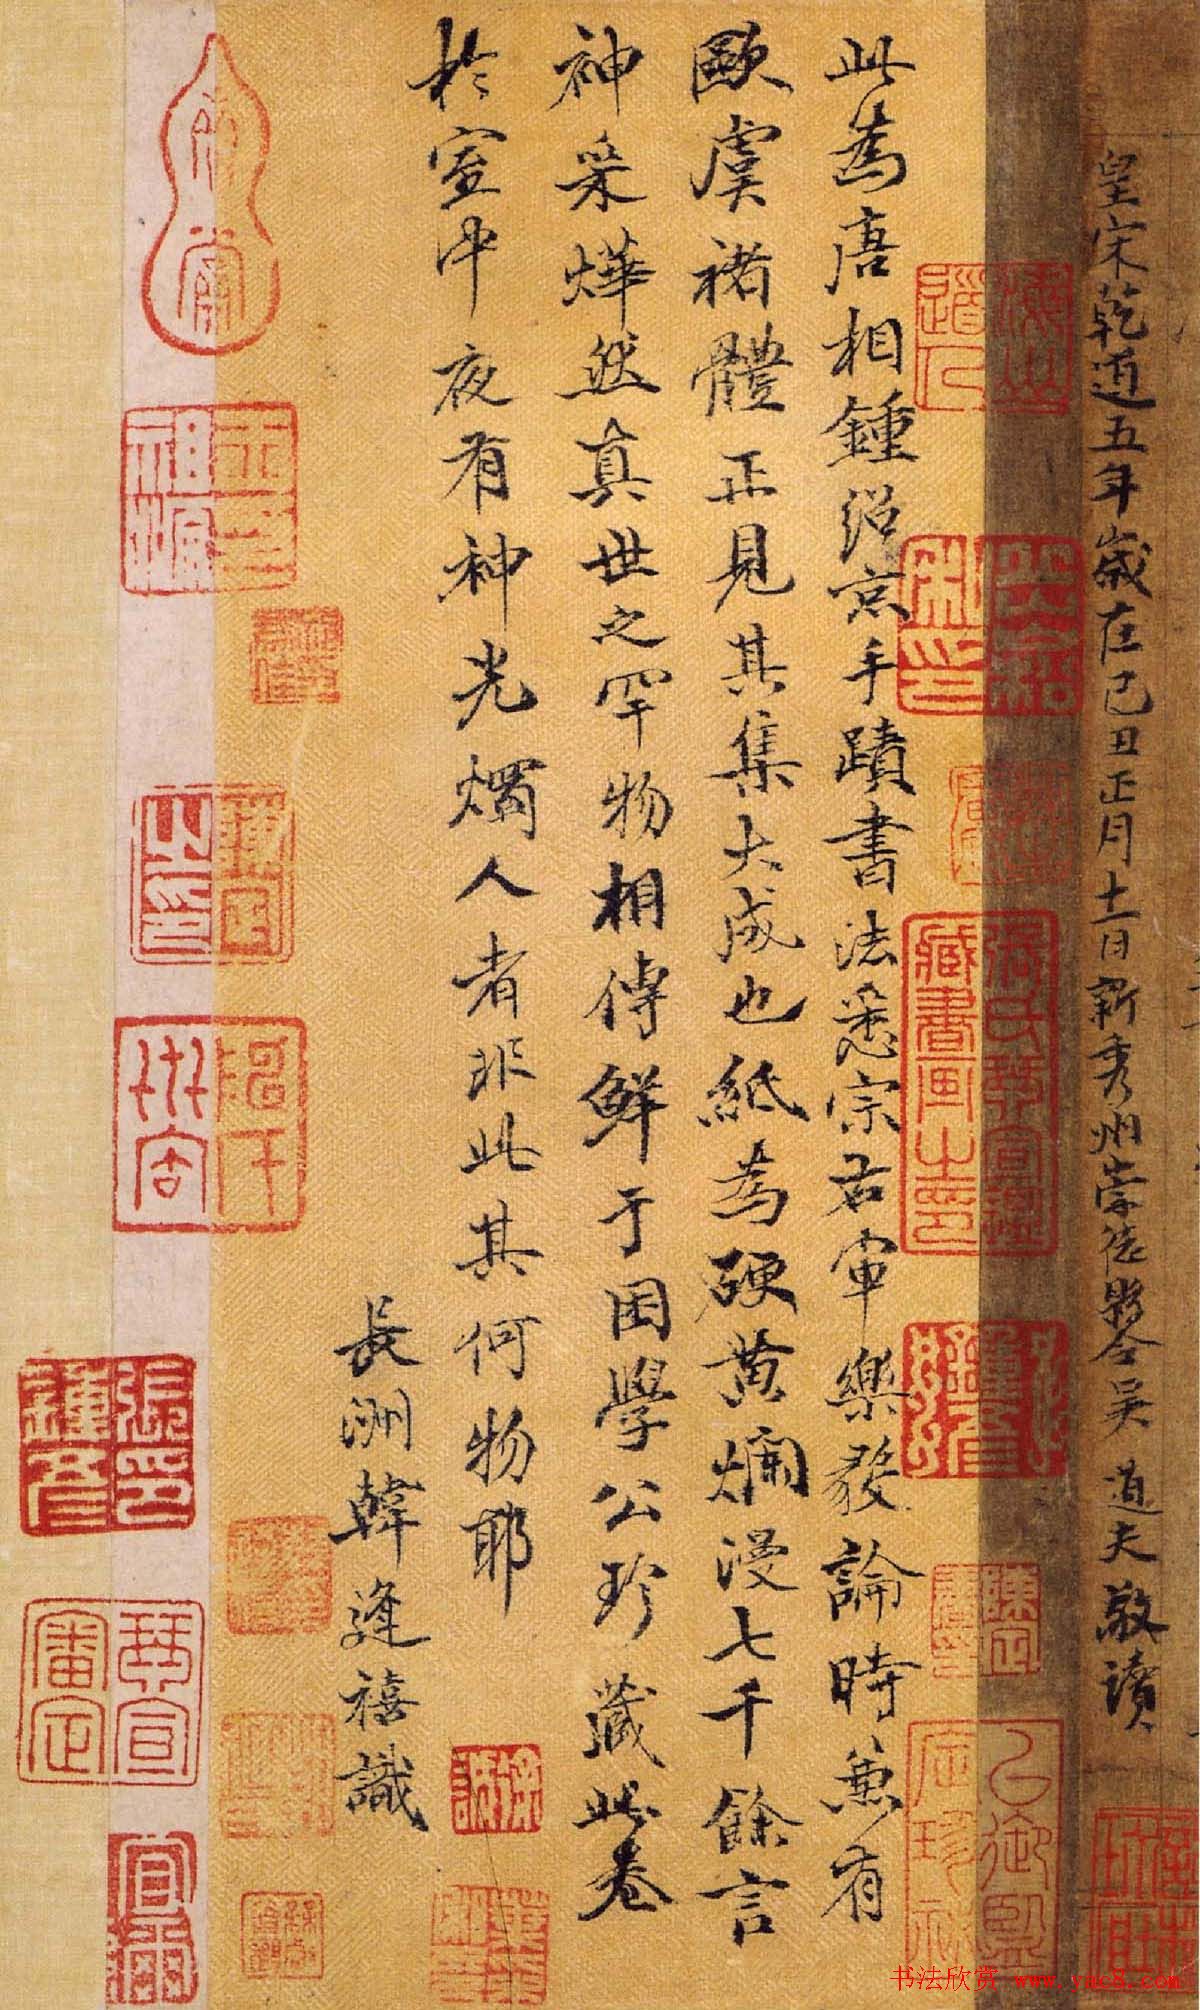 皇宋乾道五年歲在己丑正月十一日新秀州崇德縣令吳道夫敬讀
此為唐相鍾紹京手蹟書法悉宗右軍樂毅論時兼有
歐虞褚體正見其集大成也紙為硬黃爛漫七千餘言
神采燁然真世之罕物相傳鮮于困學公珍藏此卷
於室中夜有神光燭人者非此其何物耶
長洲韓逢禧識
書法欣賞 www.yac8.com